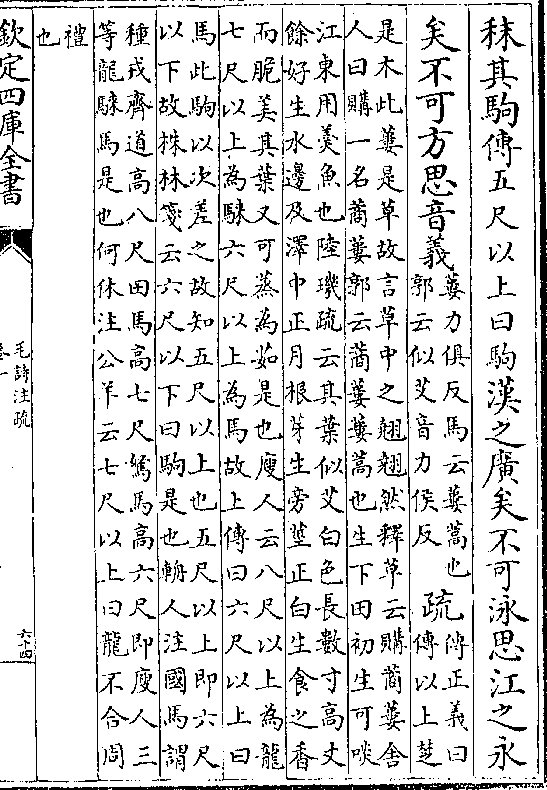 秣其駒傳五尺以上曰駒漢之廣矣不可泳思江之永
矣不可方思音義蔞力俱反馬云蔞蒿也
郭云似艾音力侯反疏傳正義曰
傳以上楚
是木此蔞是草故言草中之翹翹然釋草云購蔏蔞舍
人曰購一名蔏蔞郭云蔏蔞蔞蒿也生下田初生可啖
江東用羹魚也陸璣疏云其葉似艾白色長數寸高丈
餘好生水邊及澤中正月根芽生旁莖正白生食之香
而脆美其葉又可蒸為茹是也廋人云八尺以上為龍
七尺以上為騋六尺以上為馬故上傳曰六尺以上曰
馬此駒以次差之故知五尺以上也五尺以上即六尺
以下故株林箋云六尺以下曰駒是也輈人注國馬謂
種戎齊道高八尺田馬高七尺駑馬高六尺即廋人三
等龍騋馬是也何休注公羊云七尺以上曰龍不合周
禮
也
欽定四庫全書
毛詩注疏
卷一
六十四